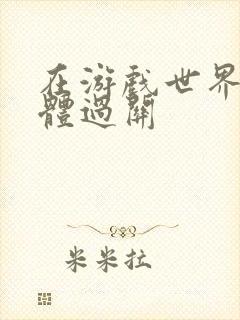 在游戏世界
體過關
米米拉